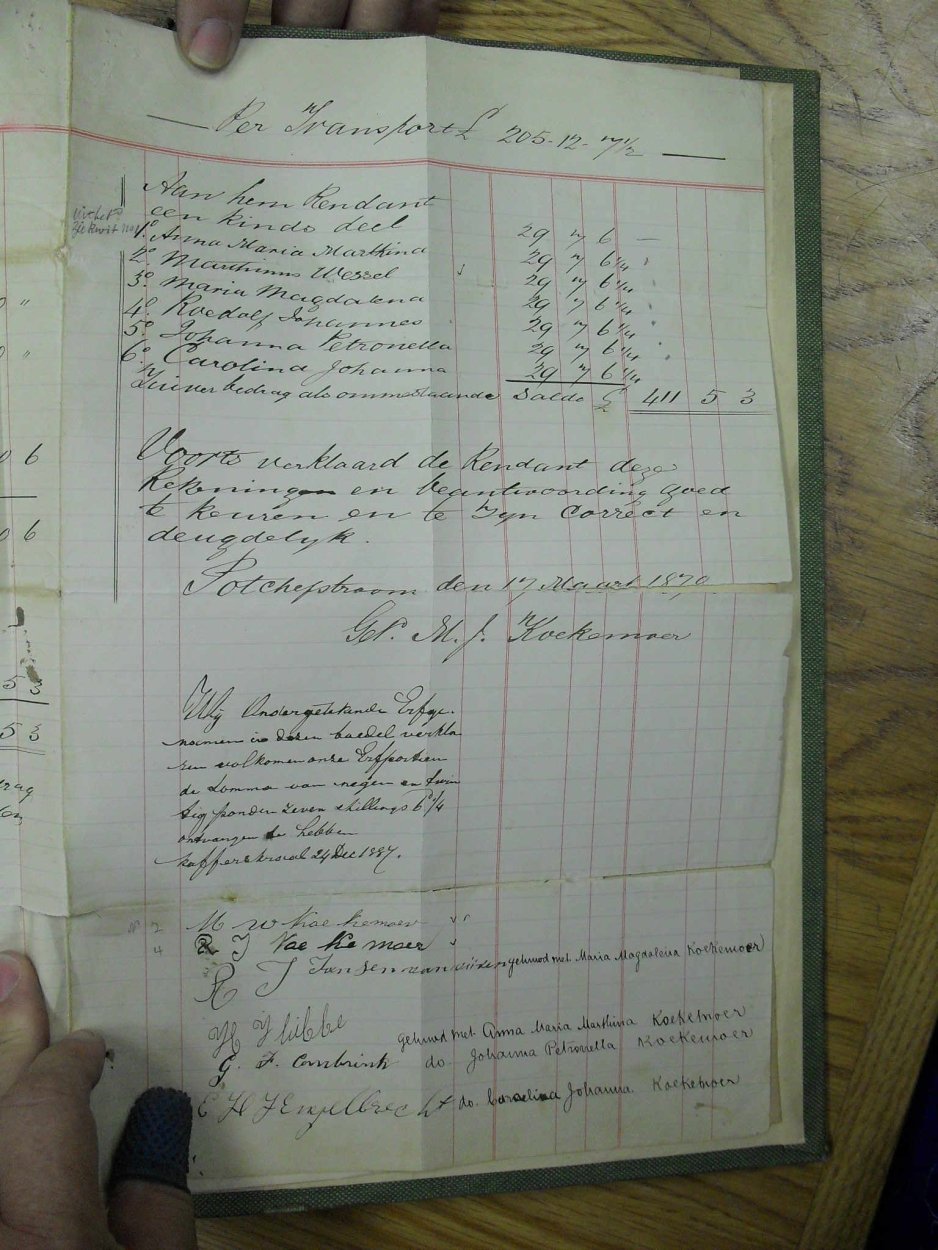 Per Transport £ 205-12-7½
Aan hem Rendant
een kinds deel 29 7 6 —
1º Anna Maria Marthina 29 7 6¼
2º Marthinus Wessel 29 7 6¼
3º Maria Magdalena 29 7 6¼
4º Roedolf Johannes 29 7 6¼
5º Johanna Petronella 29 7 6¼
6º Carolina Johanna 29 7 6¼
Zuiver bedrag als ommestaande Saldo £ 411 5 3
Voorts verklaard de Rendant deze
Rekening en beantwoording goed
te keuren en te zyn correct en
deugdelyk.
Potchefstroom den 17 Maart 1879
Get. M. J. Koekemoer
Wij Ondergetekende Erfge-
namen in dezen boedel verkla
ren volkomen onze Erfportien
de Somma van negen en twin
tig ponden zeven shillings 6d¼
ontvangen te hebben
Kafferskraal 24 Dec 1887.
No 2 M W Koekemoer
4 R J Koekemoer
R J Jansen van gehuwd met Maria Magdalena Koekemoer
H J Lubbe gehuwd met Anna Maria Marthina Koekemoer
G. F. Combrink do. Johanna Petronella Koekemoer
C H J Engelbrecht do. Carolina Johanna Koekemoer
0 "
0 "
0 6
0 6
5 3